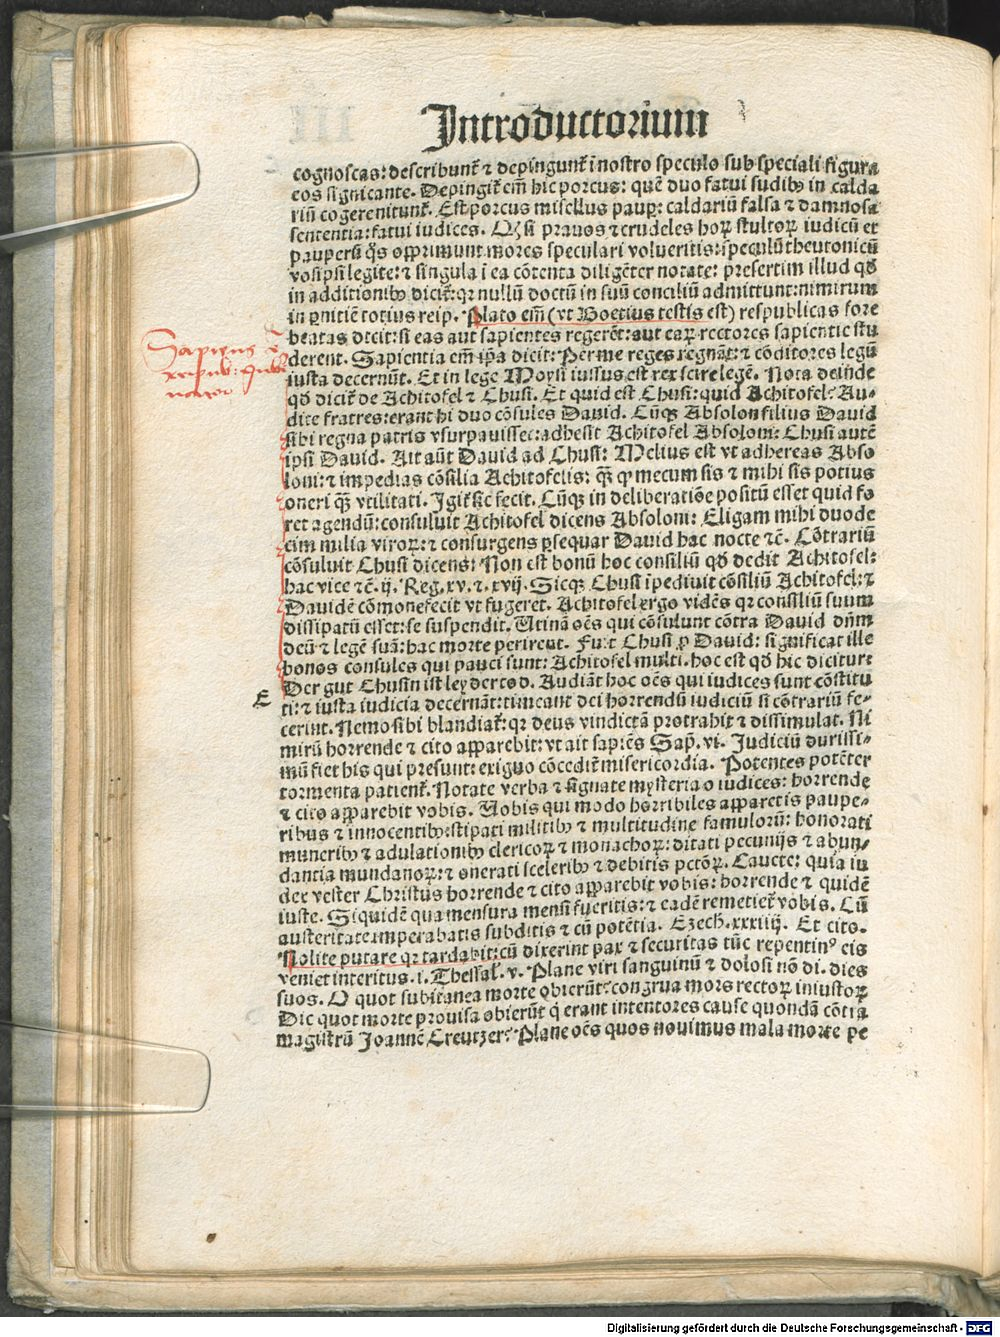 Introductorium
cognoscas: describunt̃ ⁊ depingunt̃ ĩ nostro speculo sub speciali figura
eos signicante. Depingit̃ em̃ hic porcus: quẽ duo fatui sudibꝫ in calda
riũ cogere nitunt̃. Est porcus misellus paupꝑ: caldariũ falsa ⁊ damnosa
sententia: fatui iudices. Qꝫ si prauos ⁊ crudeles hoꝝ stultoꝝ iudicũ et
pauperũ q̃s opprimunt mores speculari volueritis: speculũ theutonicũ
vos ipsi legite: ⁊ singula ĩ ea cõtenta diligẽter notate: presertim illud qð
in additionibꝫ dicit̃: qꝛ nullũ doctũ in suũ concilium admittunt: nimirum
in ꝑnitiẽ totius reip. Plato em̃ (vt Boetius testis est) respublicas fore
beatas dicit: si eas aut sapientes regerẽt: aut eaꝝ rectores sapientie stu
derent. Sapientia em̃ ip̃a dicit: Per me reges regnãt: ⁊ cõditores legũ
iusta decernũt. Et in lege Moysi iussus est rex scire legẽ. Nota deinde
qð dicit̃ de Achitofel ⁊ Chusi. Et quid est Chusi: quid Achitofel? Au-
dite fratres: erant hi duo cõsules Dauid. Cũqꝫ Absolon filius Dauid
sibi regna patris vsurpauisset: adhesit Achitofel Absoloni: Chusi autẽ
ipsi Dauid. Ait aũt Dauid ad Chusi: Melius est vt adhereas Abso
loni: ⁊ impedias cõsilia Achitofelis: q̃ꝫ ꝙ mecum sis ⁊ mihi sis potius
oneri q̃ꝫ vtilitati. Igit̃ sic fecit. Cũqꝫ in deliberatiõe positũ esset quid fo
ret agendũ: consuluit Achitofel dicens Absoloni: Eligam mihi duode
cim milia viroꝝ: ⁊ consurgens ꝑsequar Dauid hac nocte ⁊c̃. Cõtrariũ
cõsuluit Chusi dicens: Non est bonũ hoc consiliũ qð dedit Achitofel:
hac vice ⁊c̃. ij. Reg. xv. ⁊. xvij. Sicqꝫ Chusi ĩpediuit cõsiliũ Achitofel: ⁊
Dauidẽ cõmonefecit vt fugeret. Achitofel ergo vidẽs qꝛ consiliũ suum
dissipatũ esset: se suspendit. Utinã oẽs qui cõsulunt cõtra Dauid dñm
deũ ⁊ legẽ suã: hac morte perirent. Fuit Chusi ꝓ Dauid: significat ille
bonos consules qui pauci sunt: Achitofel multi. hoc est qð hic dicitur:
Der gut Chusin ist leyder tod. Audiãt hoc oẽs qui iudices sunt cõstitu
E
ti: ⁊ iusta iudicia decernãt: timeant dei horrendũ iudiciũ si cõtrariũ fe-
cerint. Nemo sibi blandiat̃: qꝛ deus vindictã protrahit ⁊ dissimulat. Ni
mirũ horrende ⁊ cito apparebit: vt ait sapiẽs Sap̃. vi. Judiciũ durissi-
mũ fiet his qui presunt: exiguo cõcedit̃ misericordia. Potentes potẽter
tormenta patient̃. Notate verba ⁊ signate mysteria o iudices: horrende
⁊ cito apparebit vobis. Uobis qui modo horribiles apparetis paupe-
ribus ⁊ innocentibꝫ: stipati militibꝫ ⁊ multitudine famuloꝝ: honorati
muneribꝫ ⁊ adulationibꝫ clericoꝝ ⁊ monachoꝝ: ditati pecunijs ⁊ abun-
dantia mundanoꝝ: ⁊ onerati sceleribꝫ ⁊ debitis pctõꝝ. Cauete: quia iu
dex vester Christus horrende ⁊ cito apparebit vobis: horrende ⁊ quidẽ
iuste. Siquidẽ qua mensura mensi fueritis: ⁊ eadẽ remetiet̃ vobis. Cũ
austeritate imperabatis subditis ⁊ cũ potẽtia. Ezech. xxxiiij. Et cito.
Nolite putare qꝛ tardabit: cũ dixerint pax ⁊ securitas tũc repentinꝰ eis
veniet interitus. i. Thessal̃. v. Plane viri sanguinũ ⁊ dolosi nõ di. dies
suos. O quot subitanea morte obierũt: congrua mors rectoꝝ iniustoꝝ
Dic quot morte prouisa obierũt q̃ erant intentores cause quondã cõtra
magistrũ Joannẽ Creutzer? Plane oẽs quos nouimus mala morte pe
Digitalisierung gefördert durch die Deutsche Forschungsgemeinschaft - DFG